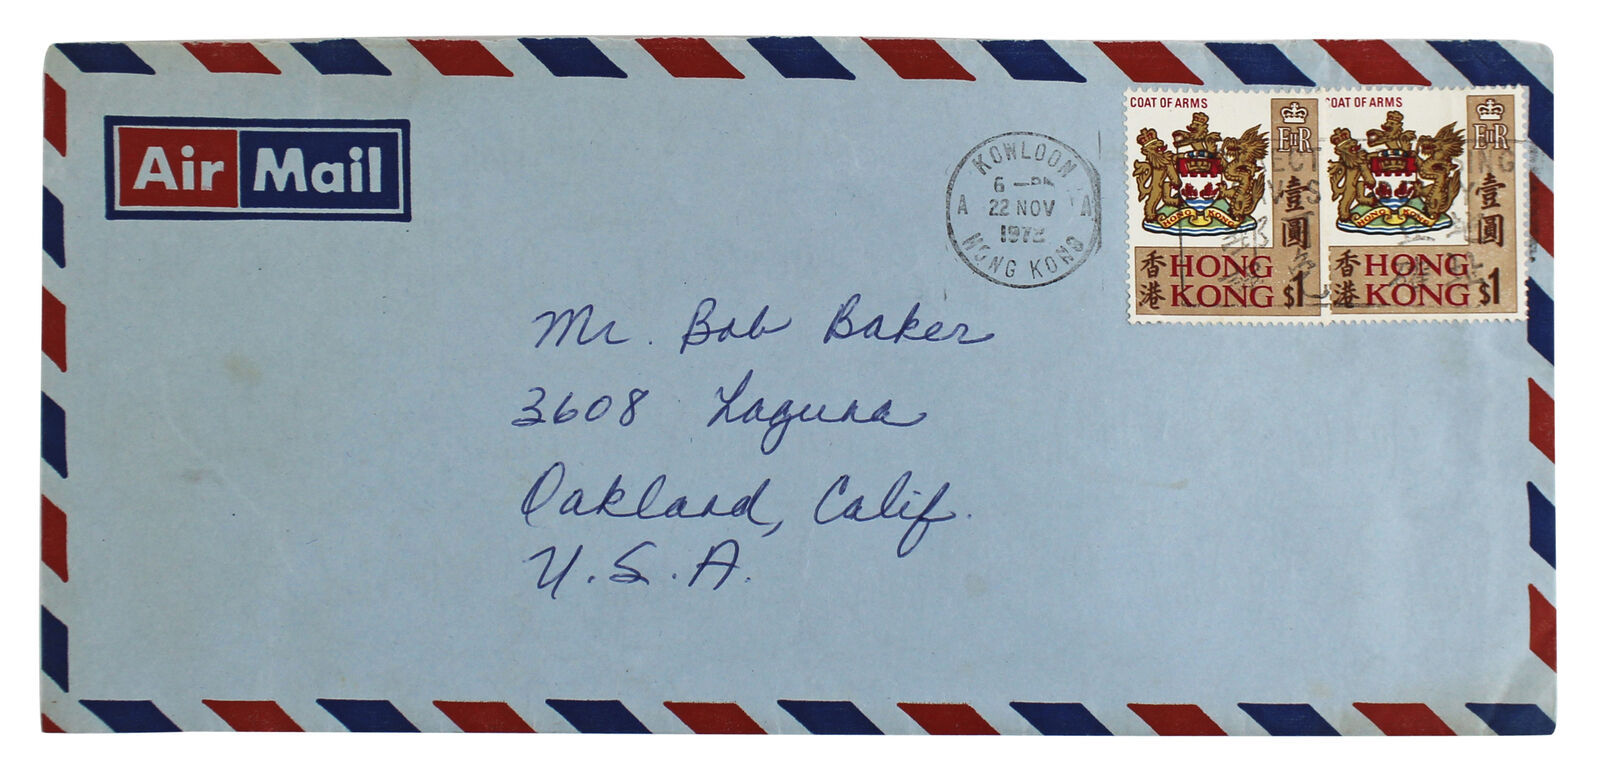 Air Mail
KOWLOON
6 - PM
A 22 NOV A
197
HONG KONG
COAT OF ARMS
EIIR
壹圓
HONG KONG
香港
HONG
KONG
$1
COAT OF ARMS
EIIR
壹圓
HONG KONG
香港
HONG
KONG
$1
Mr. Bob Baker
3608 Laguna
Oakland, Calif.
U.S.A.